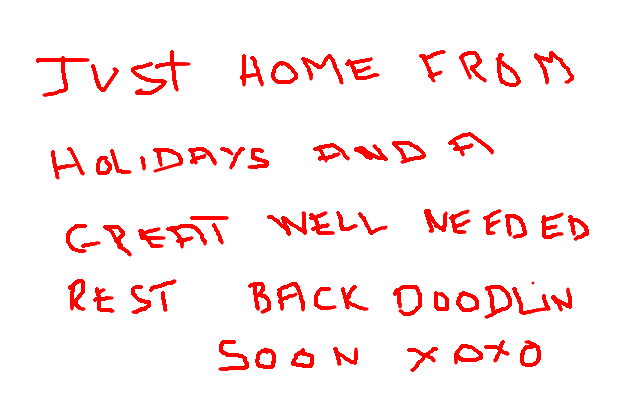 JUST HOME FROM
HOLIDAYS AND A
GREAT WELL NEEDED
REST BACK DOODLIN
SOON XOXO